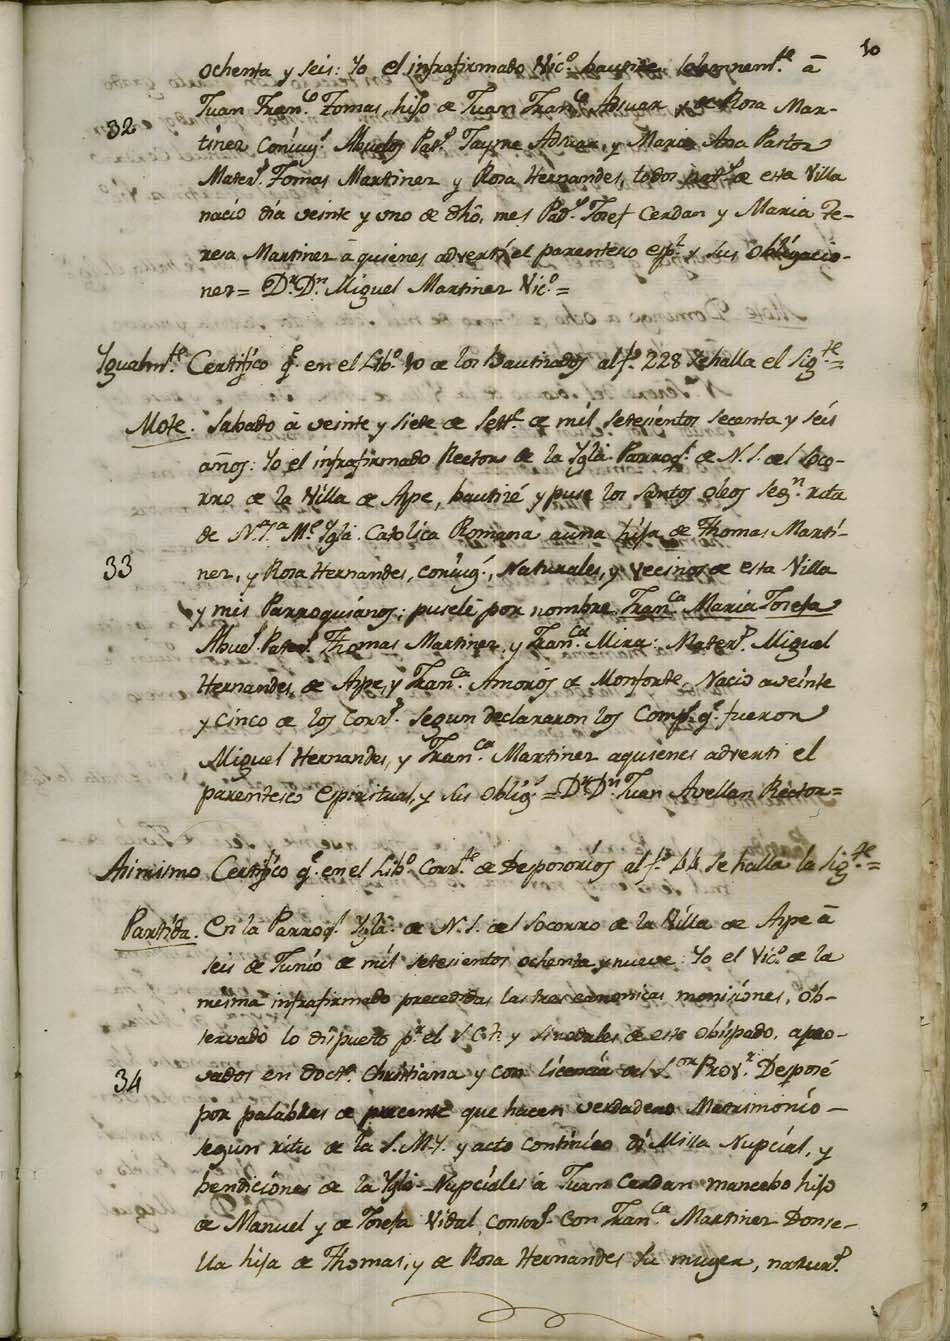 10
ochenta y seis: Yo el infrafirmado Vic.º bautize solemnem.te à
32
Juan Fran.co Tomas, hijo de Juan Fran.co Asuar y de Rosa Mar-
tinez conjug.s Abuelos Pat.s Jayme Asuar, y Maria Ana Pastor
Mater.s Tomas Martinez y Rosa Hernandes, todos nat.s de esta Villa
nacio dia veinte y uno de dho, mes Pad.s Josef Cerdan y Maria Te-
resa Martinez à quienes adverti el parentesco esp.l y sus obligacio-
nes = D.r D.n Miguel Martinez Vic.º =
Ygualm.te Certifico q.e en el Lib.º 10 de los Bautizados al f.º 228 se halla el sig.te =
Mote. Sabado à veinte y siete de Set.e de mil setesientos secenta y seis
años: Yo el infrafirmado Rector de la Ygla. Parroq.l de N.S. del Soco-
rro de la Villa de Aspe, bautizé y puse los Santos Oleos seg.n rito
de N.ª S.ta M.e Ygla. Catolica Romana auna hija de Thomas Marti-
33
nez, y Rosa Hernandes, conjug.s, Naturales, y vecinos de esta Villa
y mis Parroquianos; pusele por nombre Fran.ca Maria Josefa
Abue.s Pater.s Thomas Martinez, y Fran.ca Mira: Mater.s Miguel
Hernandes, de Aspe, y Fran.ca Amorós de Monforte, Nacio aveinte
y cinco de los corr.s segun declararon los Comp.s q.e fueron
Miguel Hernandes, y Fran.ca Martinez aquienes adverti el
parentesco Espiritual, y sus oblig.s = D.r D.n Juan Avellan Rector =
Asimismo Certifico q.e en el Lib.º Corr.te de Desposorios al f.º 44 se halla la sig.te =
Partida. En la Parroq.l Ygla. de N.S. del Socorro de la Villa de Aspe à
seis de Junio de mil setesientos ochenta y nueve: Yo el Vic.º de la
misma infrafirmado precedidas las tres canonicas moniciones, ob-
servado lo dispuesto p.r el S.C.T. y sinodales de este Obispado, apro-
34
vados en doct.a Christiana y con licencia del S.or Prov.r Desposé
por palabras de precente que hacen verdadero Matrimonio -
segun ritu de la S.M.Y. y acto continuo di Missa Nupcial, y
bendiciones de la Ygla. Nupciales à Juan Cerdan mancebo hijo
de Manuel y de Josefa Vidal consor.s Con Fran.ca Martinez Donse-
lla hija de Thomas, y de Rosa Hernandes su muger, natur.s